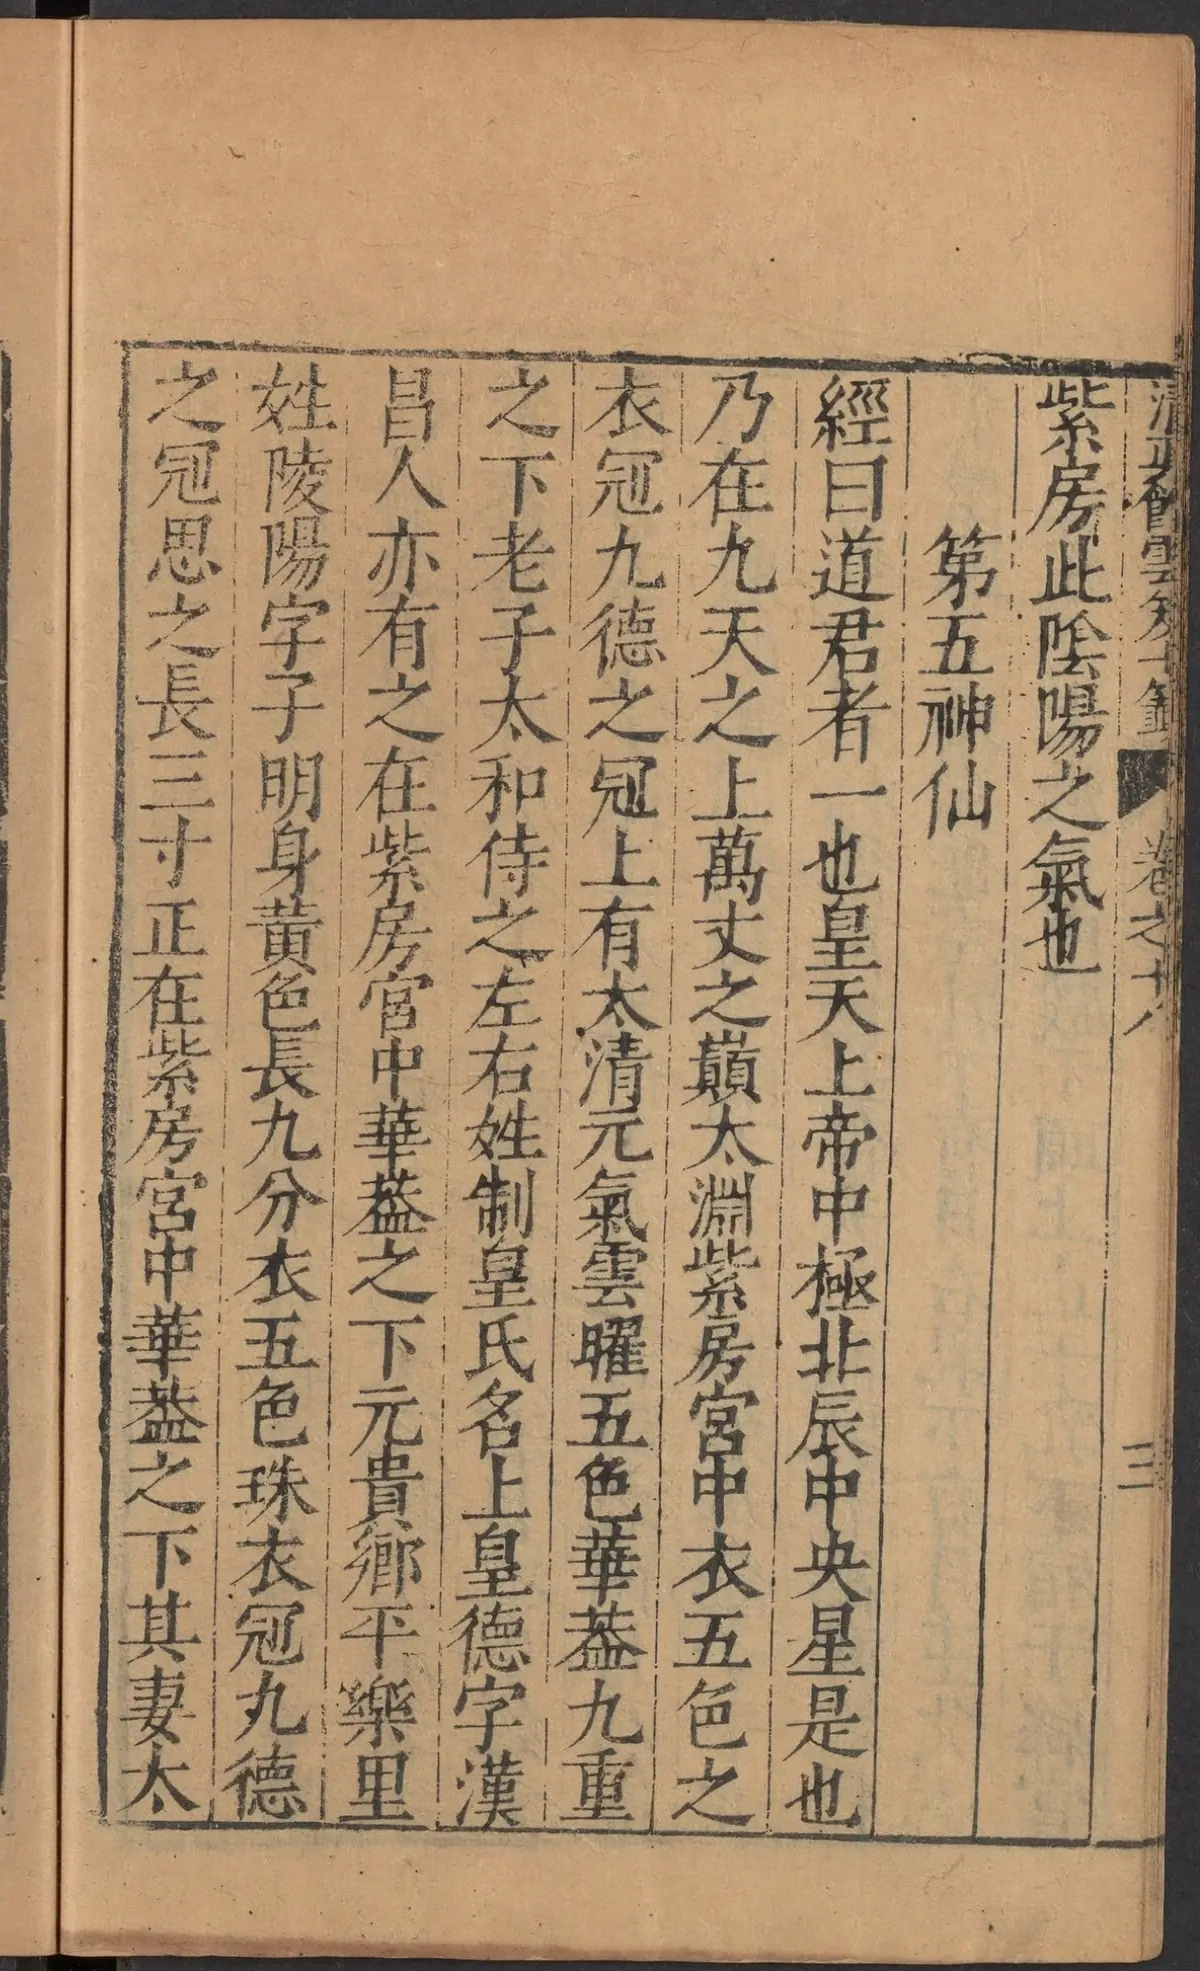 清眞館雲笈七籤 卷之十八 三
紫房此陰陽之氣也
第五神仙
經曰道君者一也皇天上帝中極北辰中央星是也
乃在九天之上萬丈之巔太淵紫房宮中衣五色之
衣冠九德之冠上有太清元氣雲曜五色華葢九重
之下老子太和侍之左右姓制皇氏名上皇德字漢
昌人亦有之在紫房宮中華葢之下元貴鄉平樂里
姓陵陽字子明身黃色長九分衣五色珠衣冠九德
之冠思之長三寸正在紫房宮中華葢之下其妻太